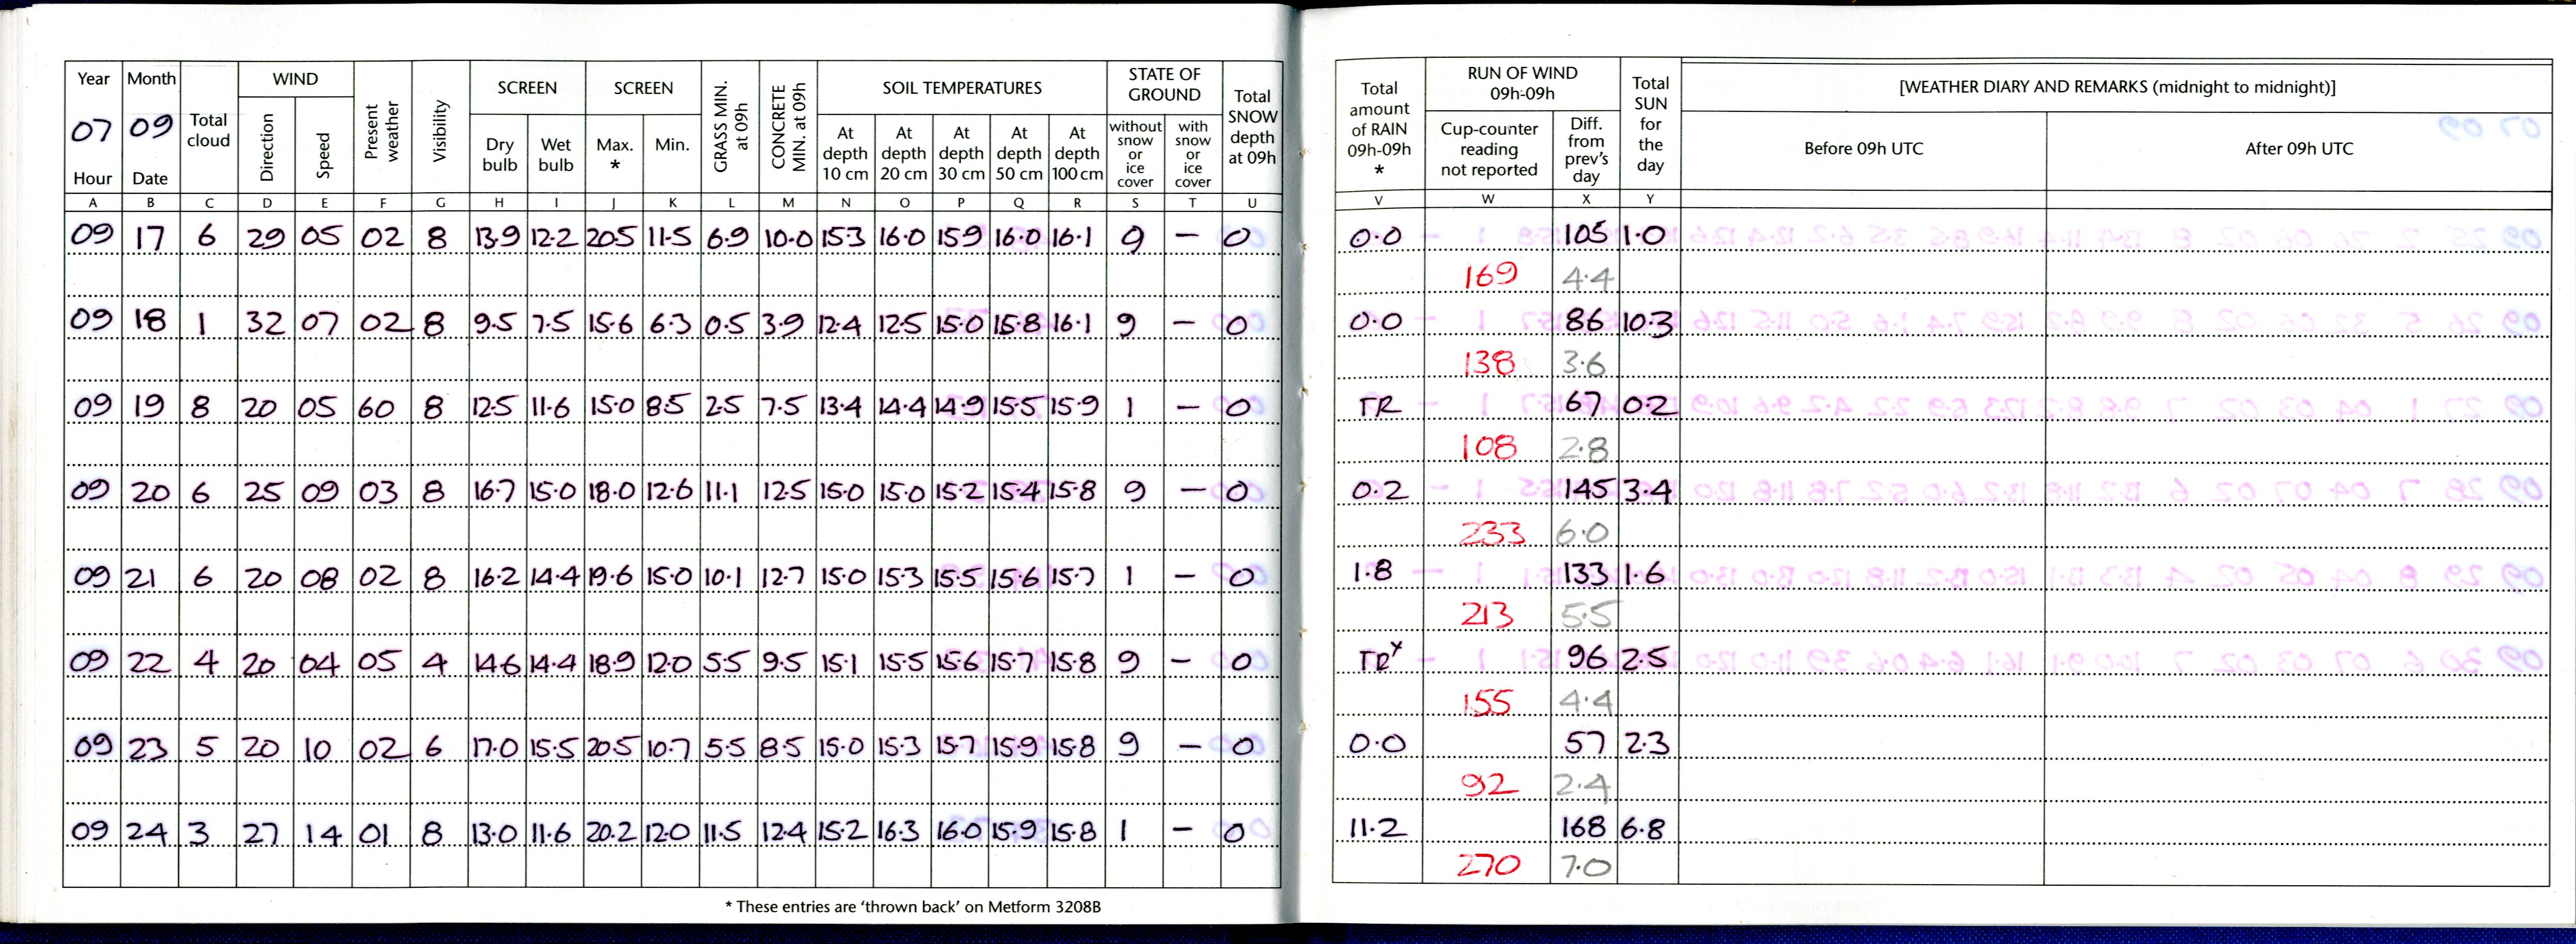 Year Month Total cloud WIND Present weather Visibility SCREEN SCREEN GRASS MIN. at 09h CONCRETE MIN. at 09h SOIL TEMPERATURES STATE OF GROUND Total SNOW depth at 09h
07 09 Direction Speed Dry bulb Wet bulb Max. * Min. At depth 10 cm At depth 20 cm At depth 30 cm At depth 50 cm At depth 100 cm without snow or ice cover with snow or ice cover
Hour Date
A B C D E F G H I J K L M N O P Q R S T U
09 17 6 29 05 02 8 13.9 12.2 20.5 11.5 6.9 10.0 15.3 16.0 15.9 16.0 16.1 9 – 0
09 18 1 32 07 02 8 9.5 7.5 15.6 6.3 0.5 3.9 12.4 12.5 15.0 15.8 16.1 9 – 0
09 19 8 20 05 60 8 12.5 11.6 15.0 8.5 2.5 7.5 13.4 14.4 14.9 15.5 15.9 1 – 0
09 20 6 25 09 03 8 16.7 15.0 18.0 12.6 11.1 12.5 15.0 15.0 15.2 15.4 15.8 9 – 0
09 21 6 20 08 02 8 16.2 14.4 19.6 15.0 10.1 12.7 15.0 15.3 15.5 15.6 15.7 1 – 0
09 22 4 20 04 05 4 14.6 14.4 18.9 12.0 5.5 9.5 15.1 15.5 15.6 15.7 15.8 9 – 0
09 23 5 20 10 02 6 17.0 15.5 20.5 10.7 5.5 8.5 15.0 15.3 15.7 15.9 15.8 9 – 0
09 24 3 27 14 01 8 13.0 11.6 20.2 12.0 11.5 12.4 15.2 16.3 16.0 15.9 15.8 1 – 0
* These entries are 'thrown back' on Metform 3208B
Total amount of RAIN 09h-09h * RUN OF WIND 09h-09h Total SUN for the day [WEATHER DIARY AND REMARKS (midnight to midnight)]
Cup-counter reading not reported Diff. from prev's day Before 09h UTC After 09h UTC
V W X Y
0.0 105 1.0
169 4.4
0.0 86 10.3
138 3.6
TR 67 0.2
108 2.8
0.2 145 3.4
233 6.0
1.8 133 1.6
213 5.5
TRx 96 2.5
155 4.4
0.0 57 2.3
92 2.4
11.2 168 6.8
270 7.0